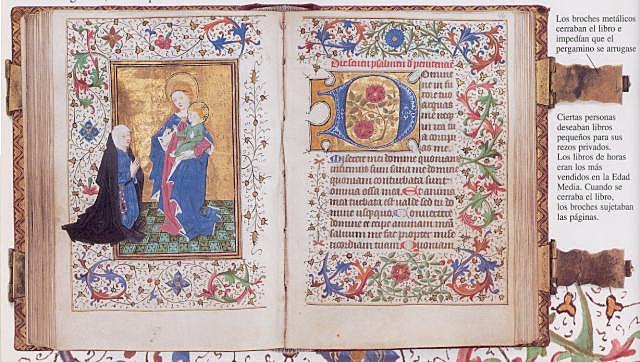 psalmen
Omine
ne in fu
rore tuo
arguas
me
Miserere mei domine quoniam
infirmus sum sana me domine
quoniam conturbata sunt
omnia ossa mea Et anima
mea turbata est valde sed tu do
mine usquequo Convertere
domine et eripe animam meā
saluum me fac propter mise
ricordiam tuam Quoniam
Los broches metálicos
cerraban el libro e
impedían que el
pergamino se arrugase
Ciertas personas
deseaban libros
pequeños para sus
rezos privados.
Los libros de horas
eran los más
vendidos en la Edad
Media. Cuando se
cerraba el libro,
los broches sujetaban
las páginas.